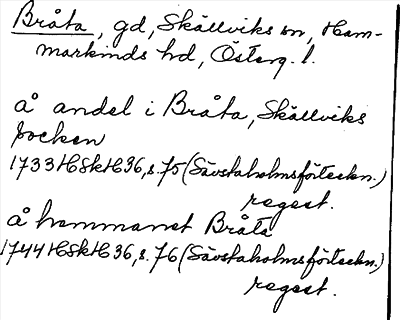 Bråta, gd, Skällviks sn, Ham-
markinds hd, Österg. l.
å andel i Bråta, Skällviks
socken
1733 HSkH 36, s. 75 (Sävstaholmsförteckn.)
regest.
å hemmanet Bråta
1744 HSkH 36, s. 76 (Sävstaholmsförteckn.)
regest.